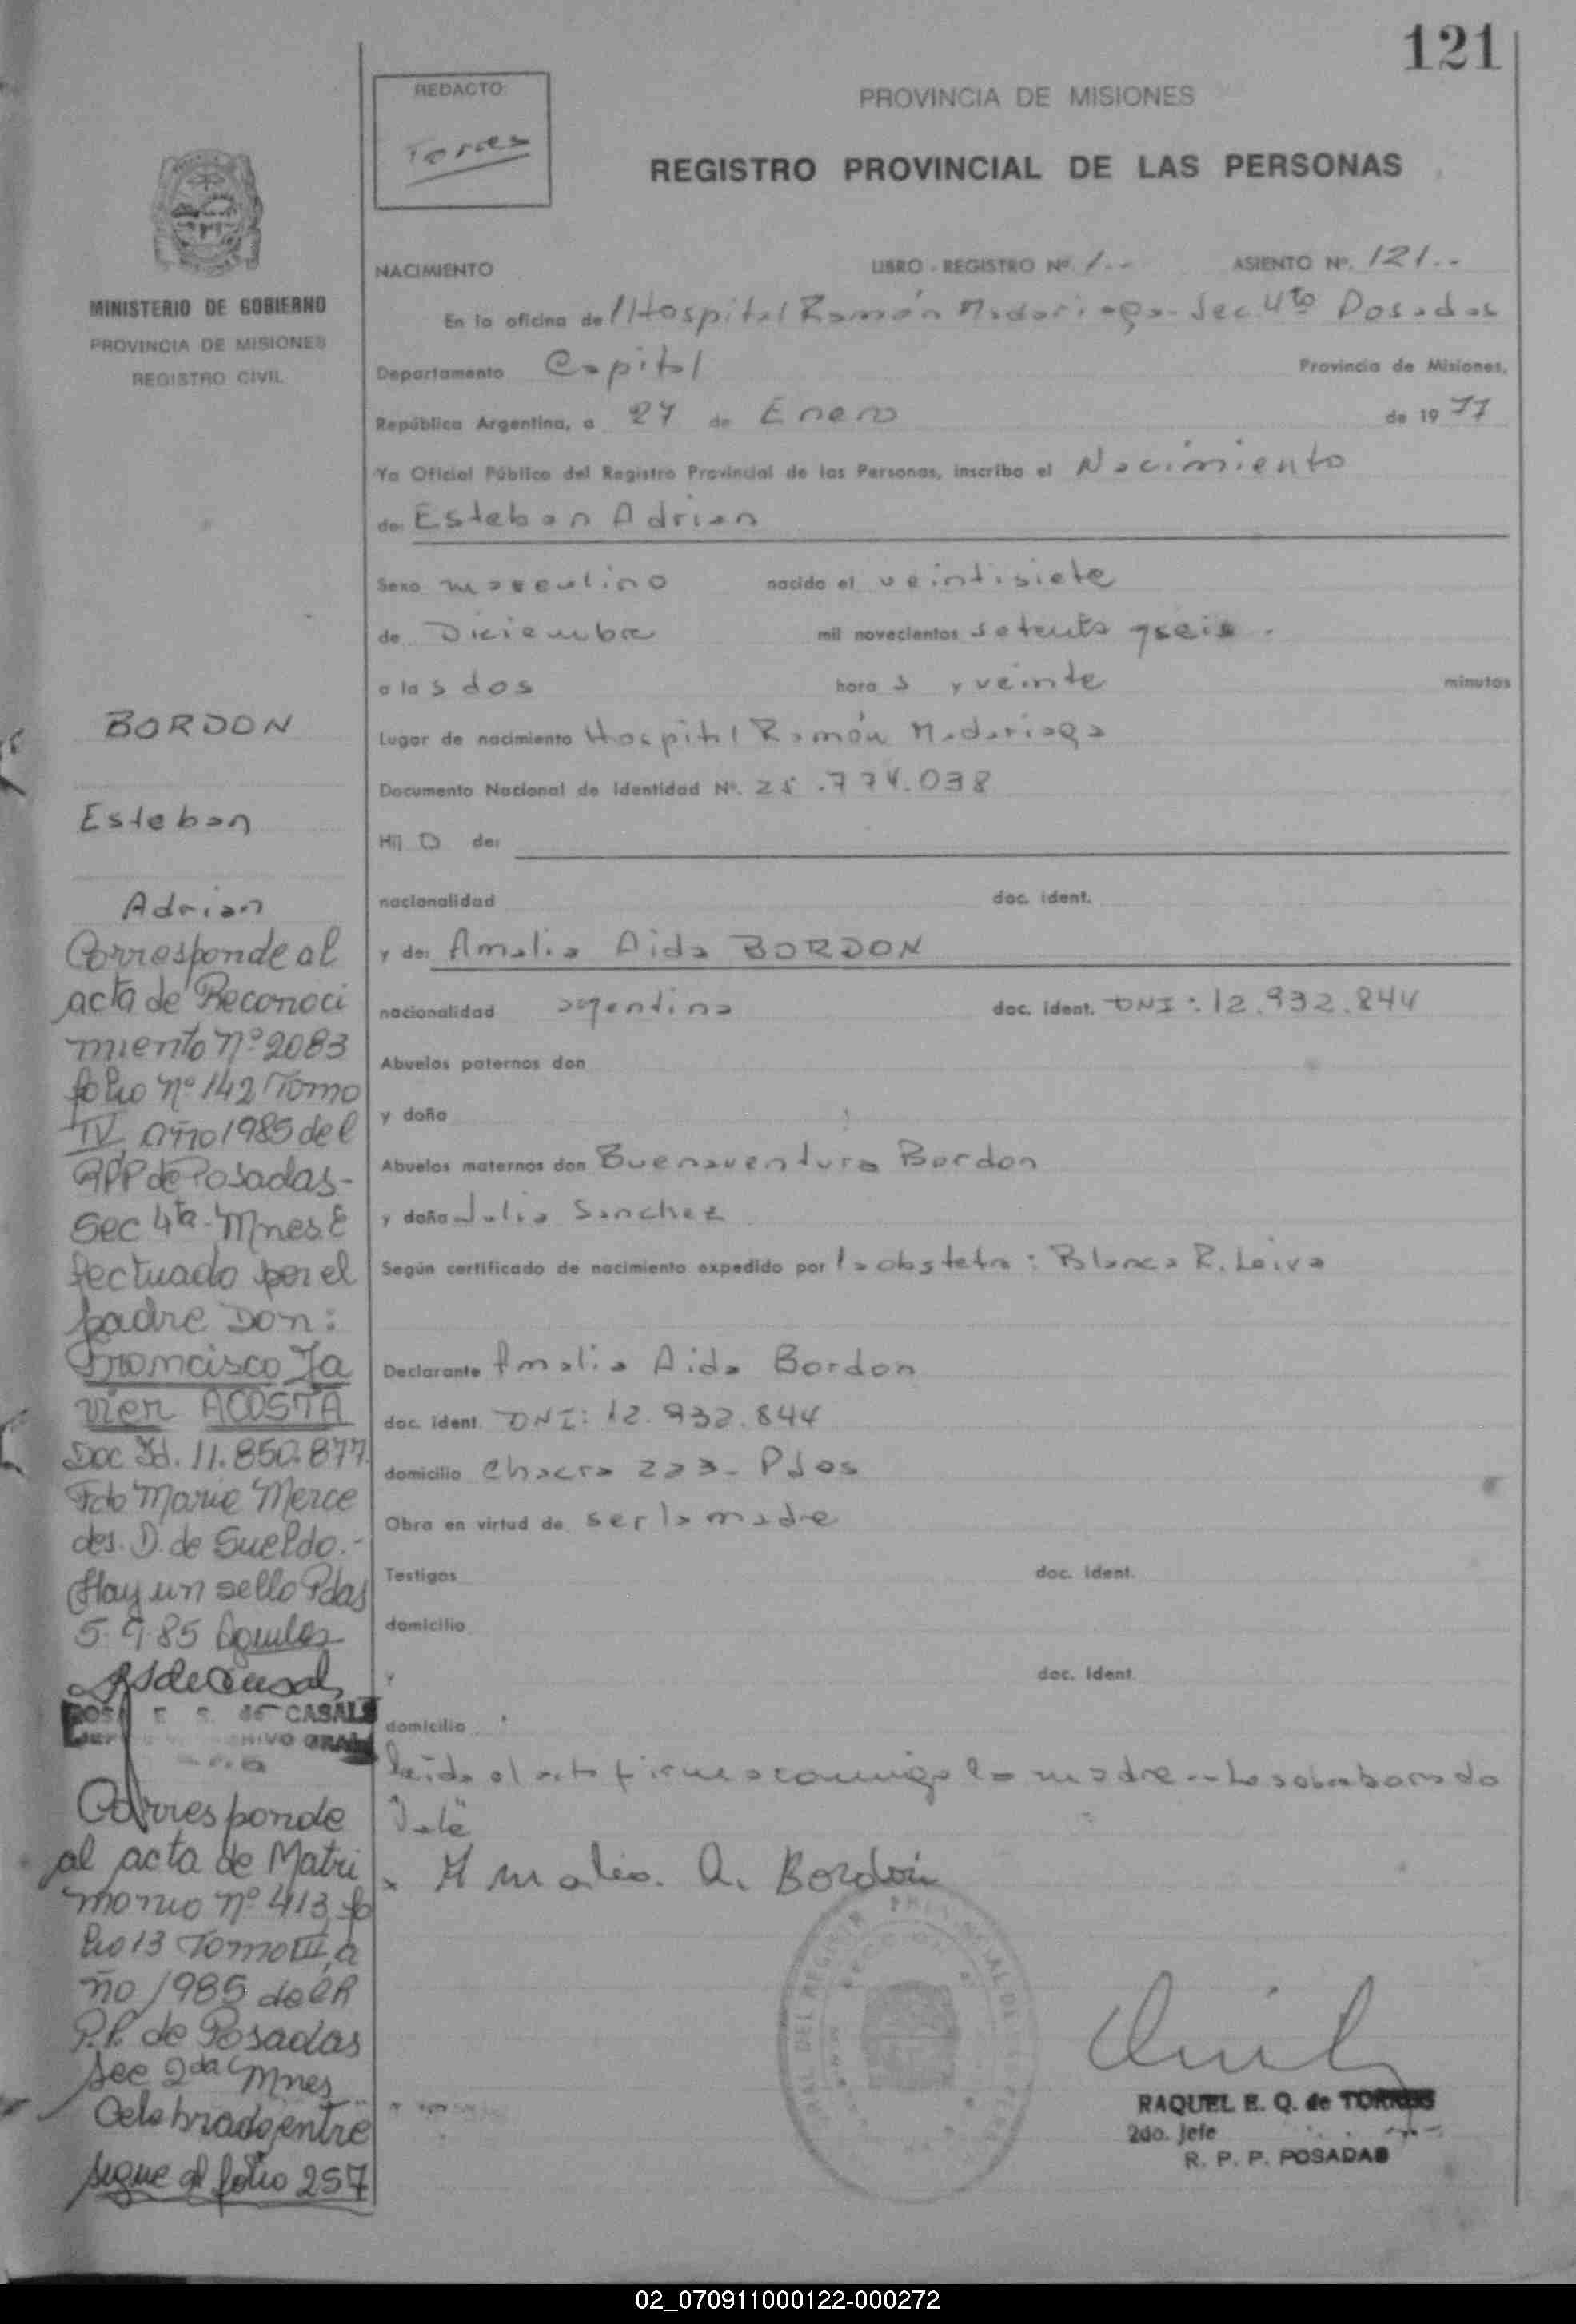 121
REDACTO:
Torres
PROVINCIA DE MISIONES
REGISTRO PROVINCIAL DE LAS PERSONAS
MINISTERIO DE GOBIERNO
PROVINCIA DE MISIONES
REGISTRO CIVIL
NACIMIENTO LIBRO - REGISTRO Nº 1.-- ASIENTO Nº. 121.--
En la oficina de Hospital Ramón Madariaga - Sec 4to Posadas
Departamento Capital Provincia de Misiones,
República Argentina, a 27 de Enero de 19 77
Yo Oficial Público del Registro Provincial de las Personas, inscribo el Nacimiento
de: Esteban Adrian
Sexo masculino nacido el veintisiete
de Diciembre mil novecientos setenta y seis.
a las dos hora s y veinte minutos
Lugar de nacimiento Hospital Ramón Madariaga
Documento Nacional de Identidad Nº. 25.774.038
Hij o de:
nacionalidad doc. ident.
y de: Amalia Aida BORDON
nacionalidad argentina doc. ident. DNI: 12.932.844
Abuelos paternos don
y doña
Abuelos maternos don Buenaventura Bordon
y doña Julia Sanchez
Según certificado de nacimiento expedido por la obstetra: Blanca R. Leiva
Declarante Amalia Aida Bordon
doc. ident. DNI: 12.932.844
domicilio Chacra 223- Pdas
Obra en virtud de ser la madre
Testigos doc. ident.
domicilio
y doc. ident.
domicilio
Leida el acta firma conmigo la madre --
Vale
x Amalia. A. Bordón
RAQUEL E. Q. de TORRES
2do. Jefe
R. P. P. POSADAS
BORDON
Esteban
Adrian
Corresponde al
acta de Reconoci
miento nº 2083
folio nº 142 Tomo
IV, año 1985 del
RPP de Posadas-
Sec 4ta. Mnes. E
fectuado por el
padre Don:
Francisco Ja
vier ACOSTA
Doc Id. 11.850.877.
Fdo Maria Merce
des. D. de Sueldo.-
Hay un sello Pdas
5-9-85
ROSA E. S. de CASALS
Corresponde
al acta de Matri
monio nº 413, fo
lio 13 Tomo III, a
ño 1985 del R
P.P. de Posadas
Sec 2da Mnes
Celebrado, entre
sigue al folio 257
02_070911000122-000272